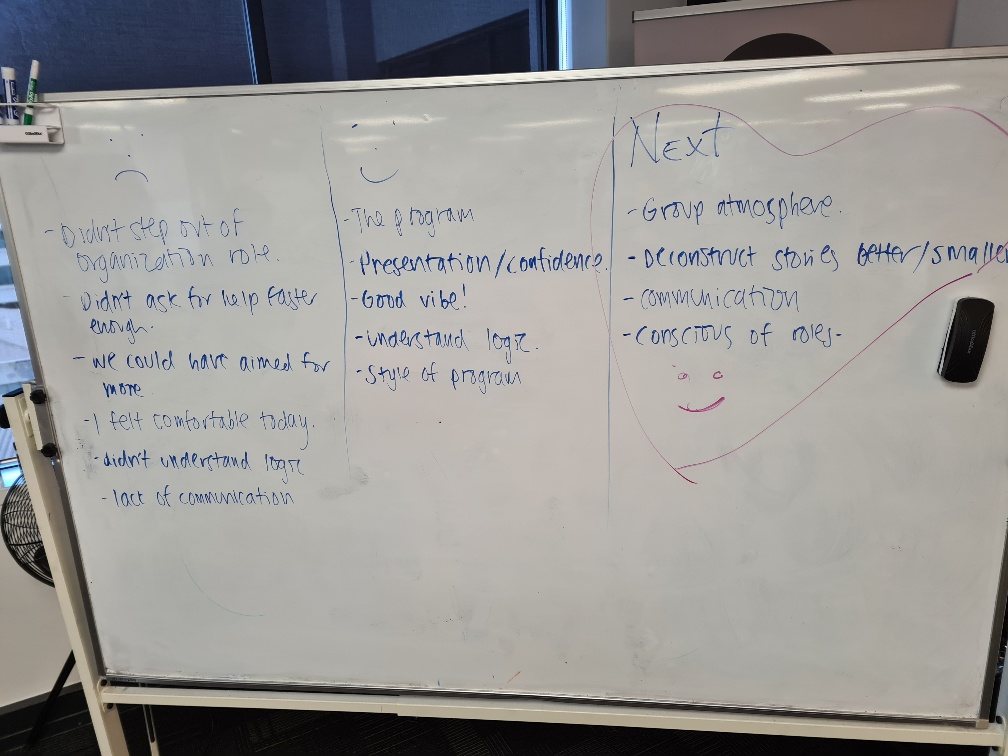 - Didn't step out of
organization role.
- Didn't ask for help faster
enough.
- we could have aimed for
more
- I felt comfortable today.
- didn't understand logic
- lack of communication
- The program
- Presentation/confidence.
- Good vibe!
- understand logic.
- style of program
Next
- Group atmosphere.
- Deconstruct stories better/smaller
- communication
- conscious of roles-